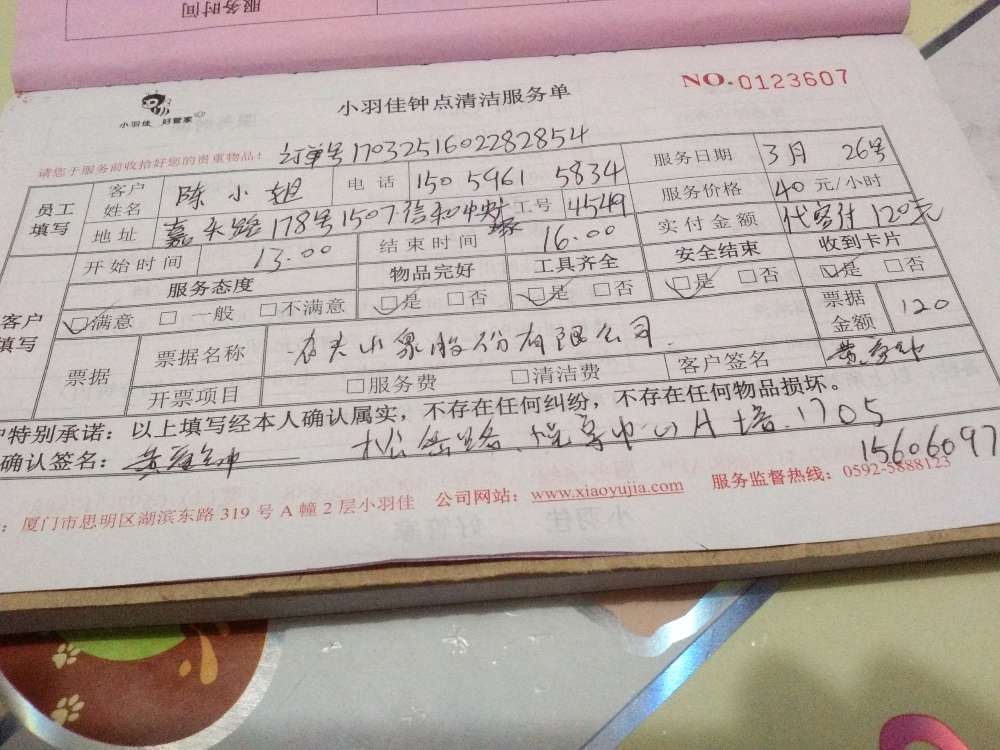 服务时间
小羽佳 好管家
小羽佳钟点清洁服务单
NO.0123607
请您于服务前收拾好您的贵重物品！
订单号17032516022828 54
员工填写 客户姓名 陈小姐 电话 150 5961 5834 服务日期 3月 26号
地址 嘉禾路178号1507信和中央 工号 4549 服务价格 40元/小时
开始时间 13.00 结束时间 16.00 实付金额 120元
客户填写 服务态度 物品完好 工具齐全 安全结束 收到卡片
☑满意 □一般 □不满意 ☑是 □否 ☑是 □否 ☑是 □否 ☑是 □否
票据 票据名称 农夫山泉股份有限公司 票据金额 120
开票项目 □服务费 □清洁费 客户签名
特别承诺：以上填写经本人确认属实，不存在任何纠纷，不存在任何物品损坏。
确认签名： 松岳路 A 1705
15606097
：厦门市思明区湖滨东路 319 号 A 幢 2 层小羽佳 公司网站：www.xiaoyujia.com 服务监督热线：0592-5888123